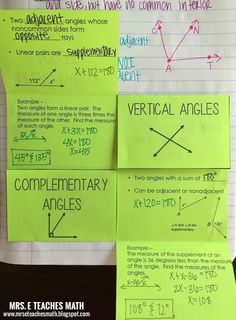 and side, but have no common interior
• Two adjacent angles whose
noncommon sides form
opposite rays
• Linear pairs are supplementary
112° x°
x+112=180
adjacent
NOT
adjacent
A
T
N
Example –
Two angles form a linear pair. The
measure of one angle is three times the
measure of the other. Find the measure
of each angle.
x+3x=180
4x=180
x=45
45° & 135°
VERTICAL ANGLES
COMPLEMENTARY
ANGLES
• Two angles with a sum of 180°
• Can be adjacent or nonadjacent
x+120=180
A
x°
∠A and ∠B are
supplementary
B
120°
Example –
The measure of the supplement of an
angle is 36 degrees less than the measure
of the angle. Find the measures of the
angles.
x+x-36=180
2x-36=180
x=108
108° & 72°
MRS. E TEACHES MATH
www.mrseteachesmath.blogspot.com